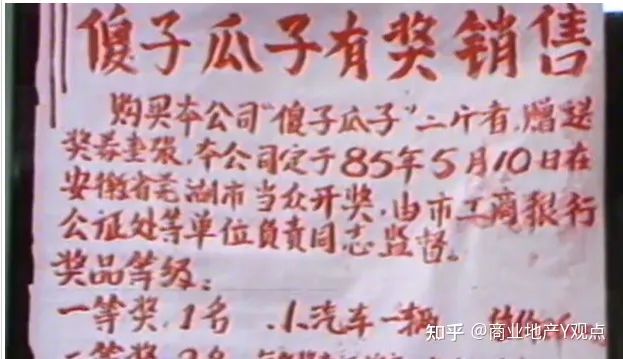 傻子瓜子有奖销售
购买本公司“傻子瓜子”二斤者,赠送
奖券壹張,本公司定于85年5月10日在
安徽省芜湖市当众开奖,由市工商银行
公证处等单位负责同志监督。
奖品等级:
一等奖,1名 小汽车一辆
二等奖
知乎 @商业地产Y观点